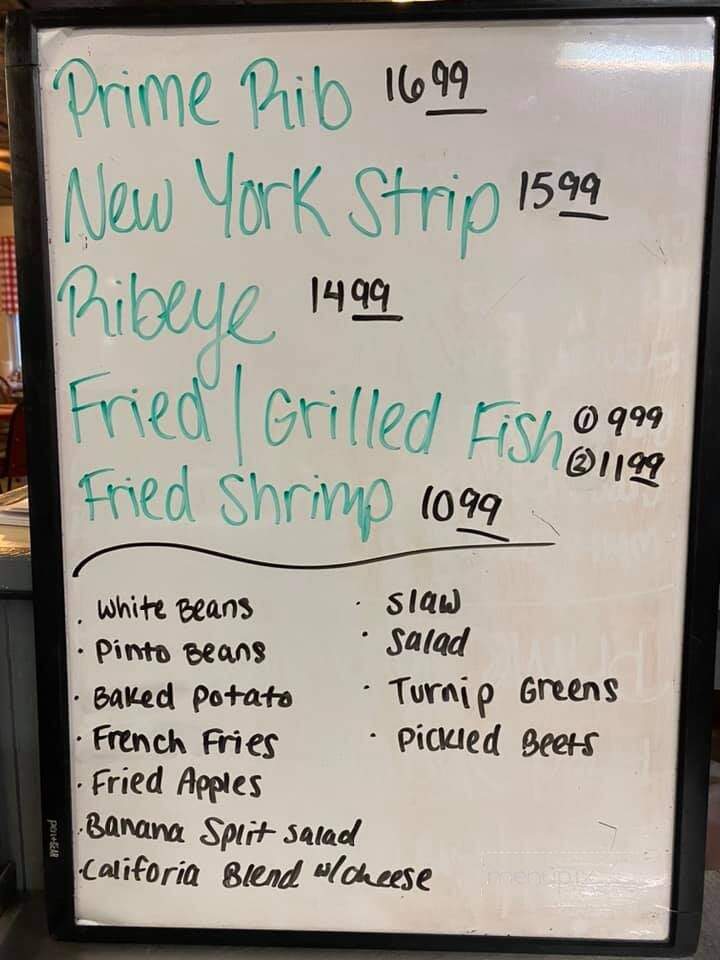 Prime Rib 16 99
New York Strip 15 99
Ribeye 14 99
Fried / Grilled Fish ① 9 99
② 11 99
Fried Shrimp 10 99
· White Beans
· Pinto Beans
· Baked Potato
· French Fries
· Fried Apples
· Banana Split Salad
· Califoria Blend w/cheese
· Slaw
· Salad
· Turnip Greens
· Pickled Beets